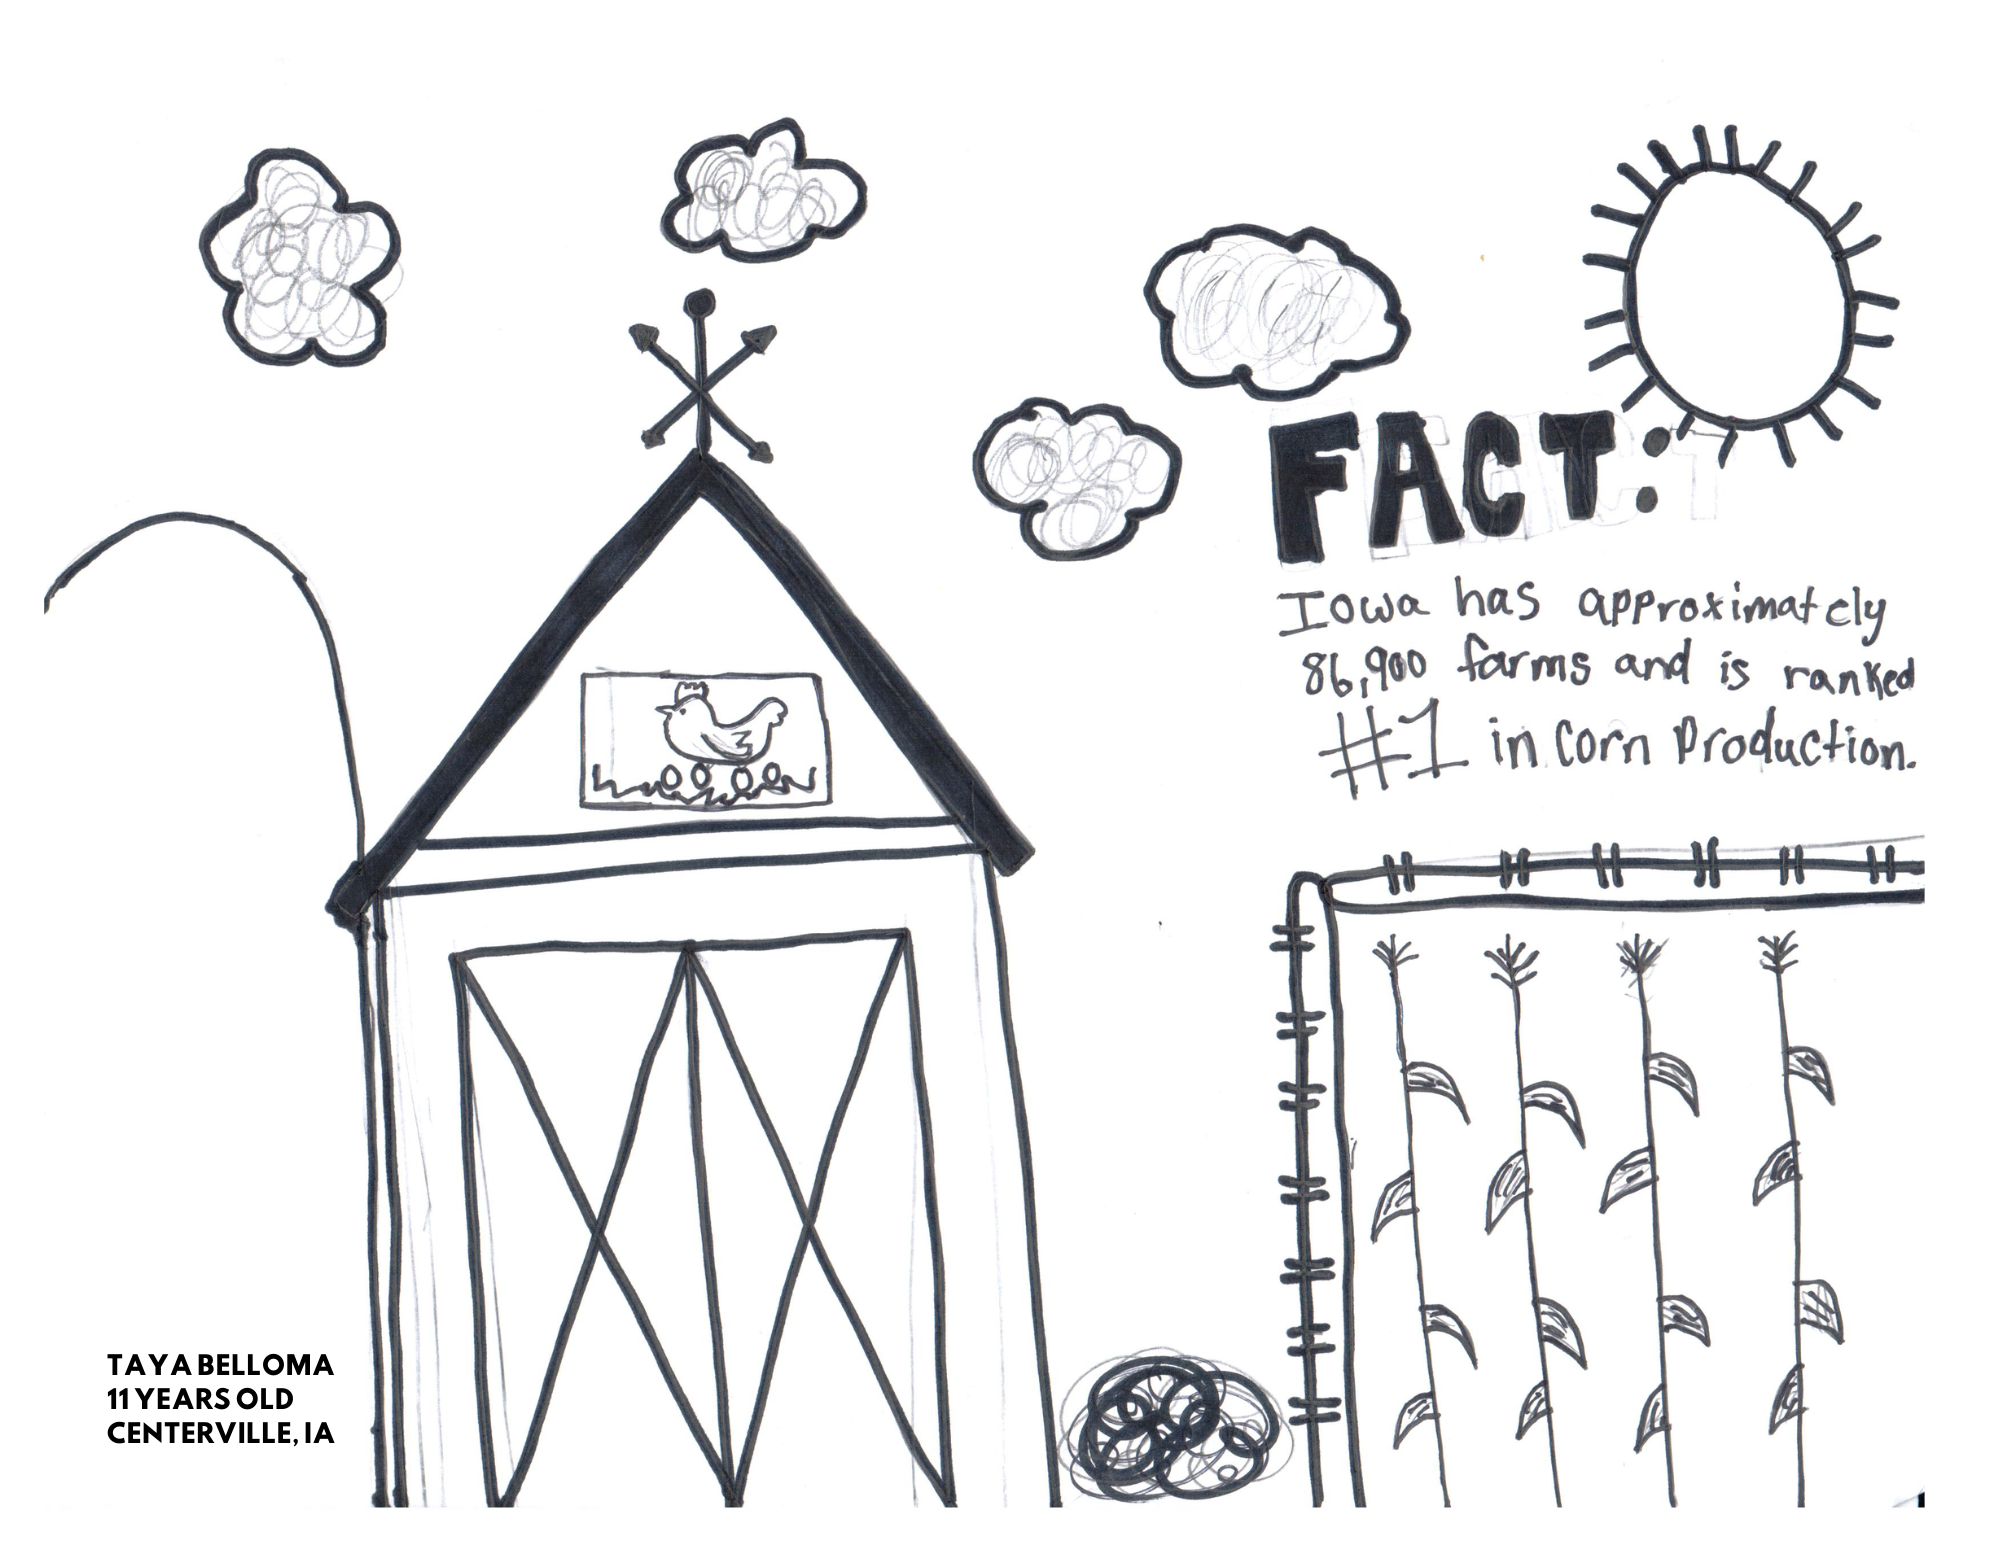 FACT:
Iowa has approximately
86,900 farms and is ranked
#1 in corn production.
TAYA BELLOMA
11 YEARS OLD
CENTERVILLE, IA